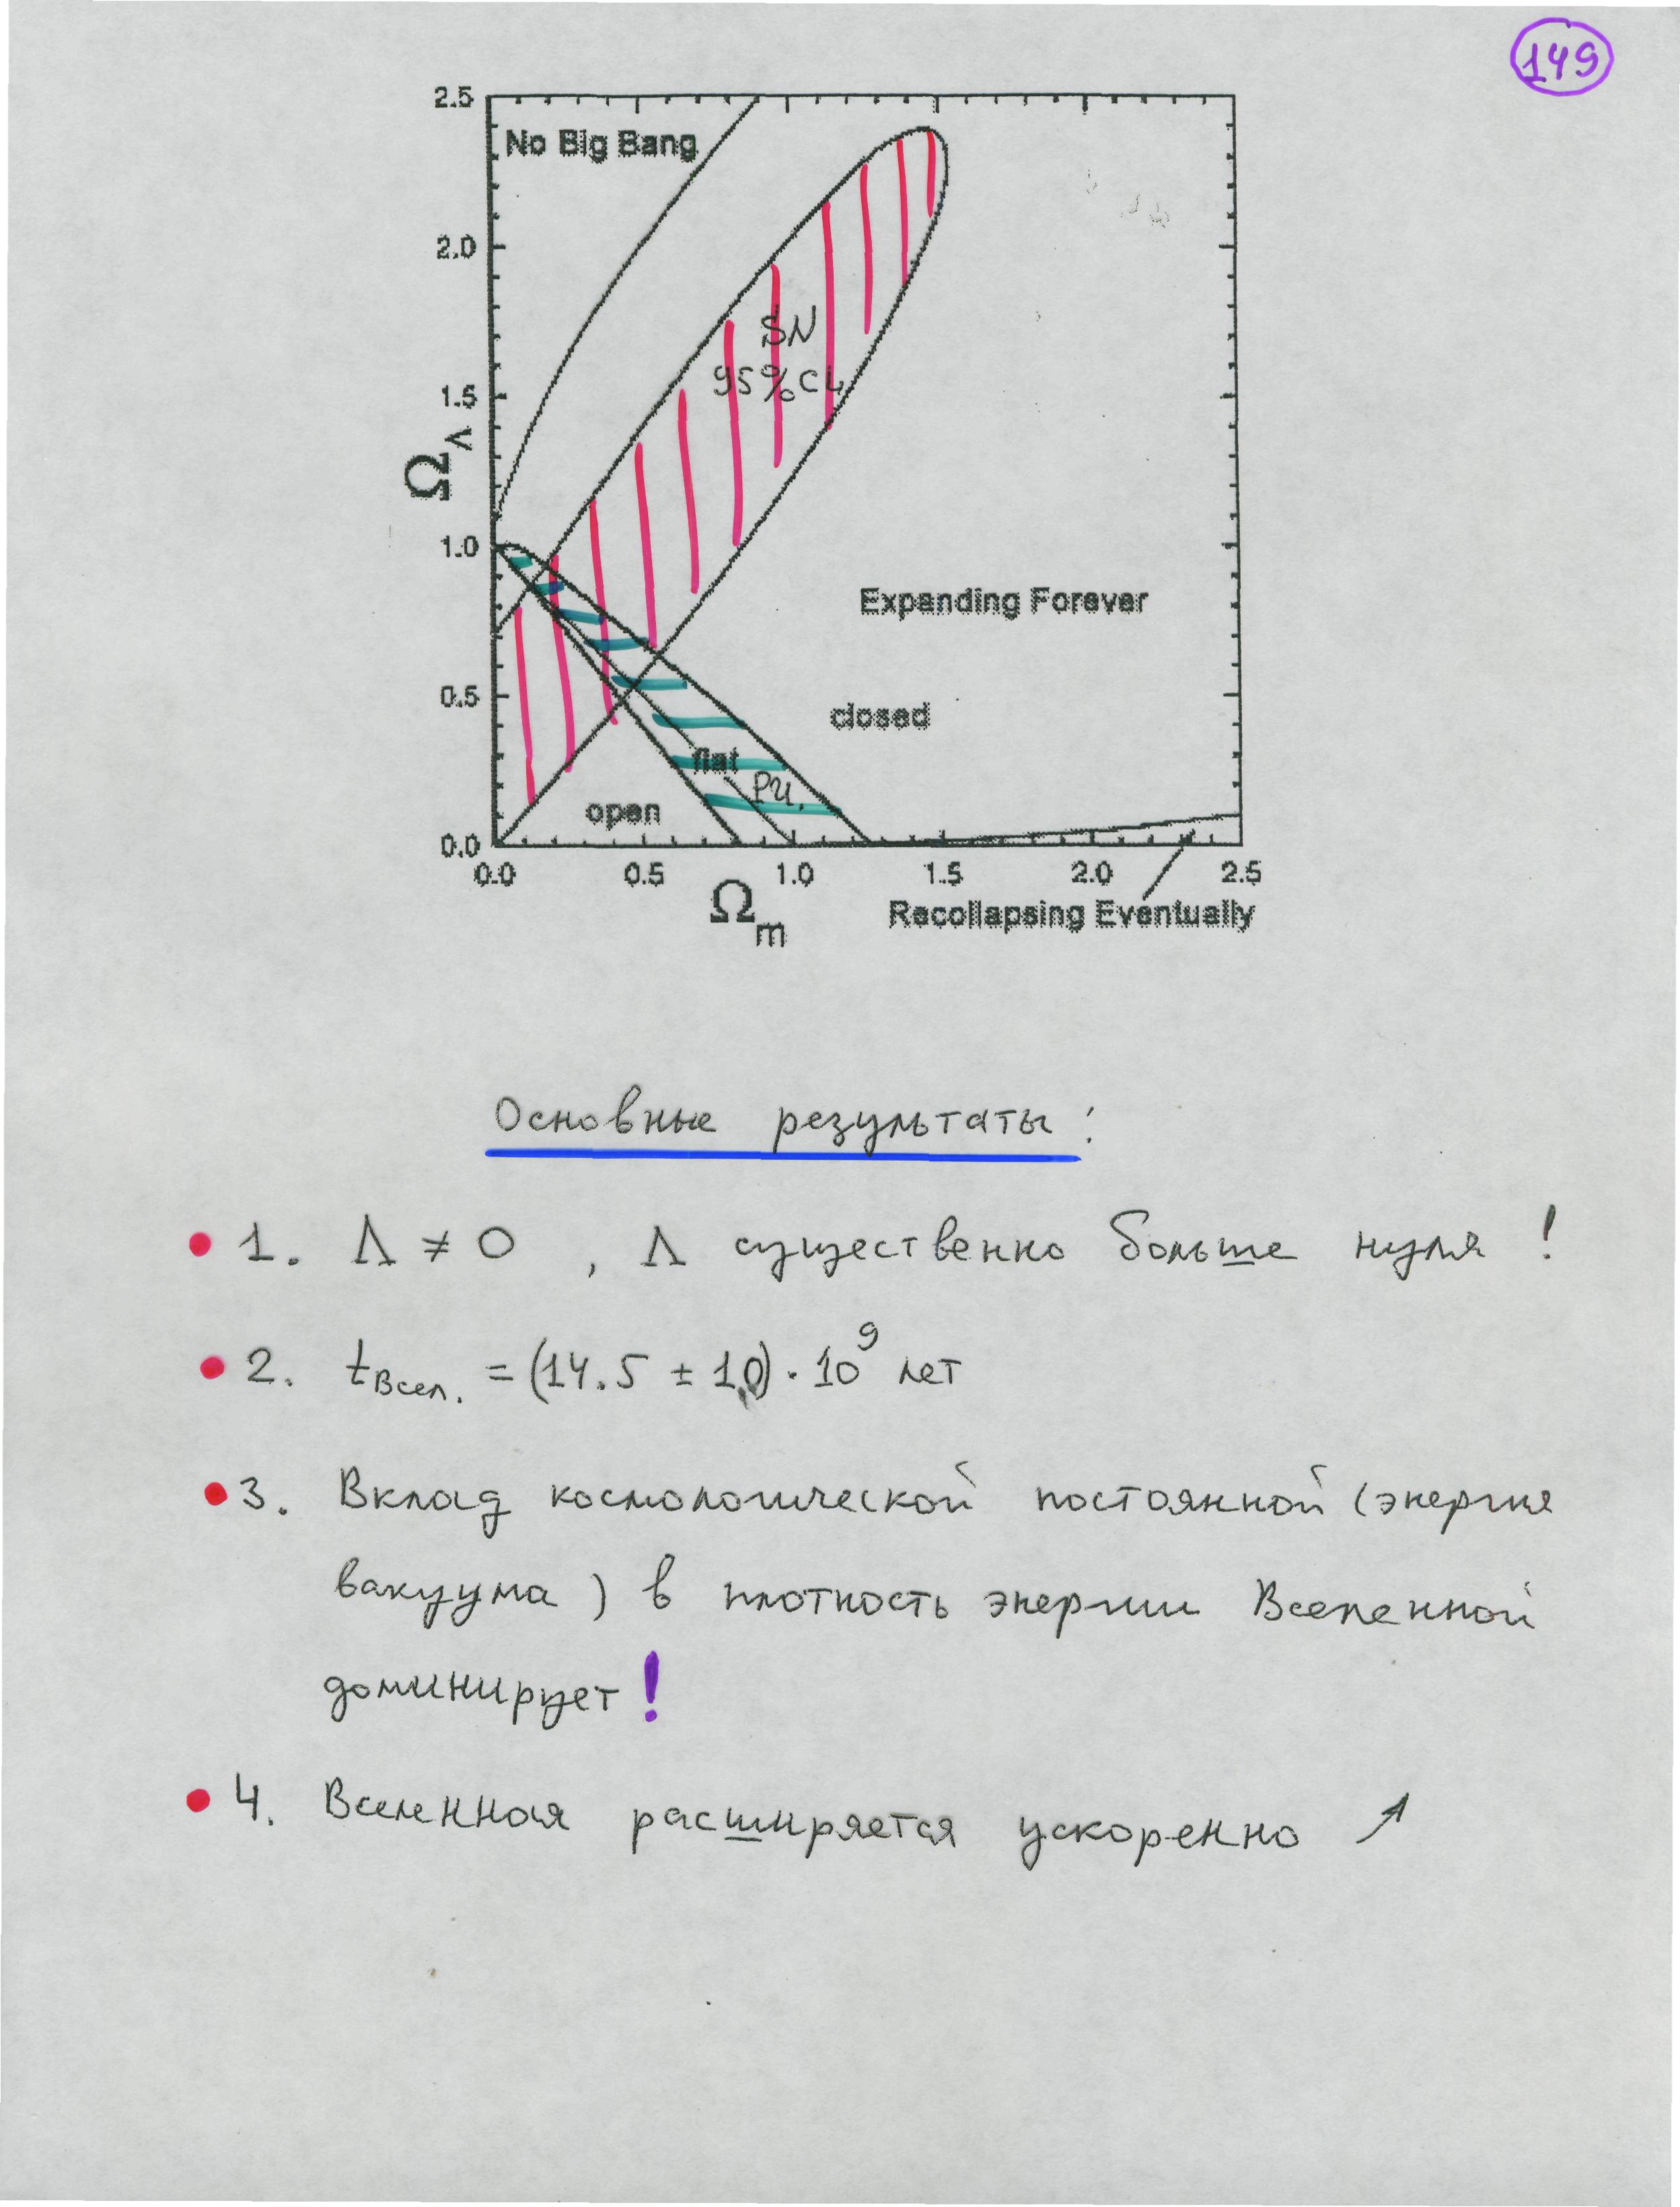 149
2.5
No Big Bang
2.0
SN
95% CL
1.5
Ω_Λ
1.0
Expanding Forever
0.5
closed
flat
РИ.
open
0.0
0.0 0.5 1.0 1.5 2.0 2.5
Ω_m
Recollapsing Eventually
Основные результаты:
• 1. Λ ≠ 0 , Λ существенно больше нуля !
• 2. t_Всел. = (14.5 ± 1.0) · 10^9 лет
• 3. Вклад космологической постоянной (энергия
вакуума) в плотность энергии Вселенной
доминирует!
• 4. Вселенная расширяется ускоренно ↗